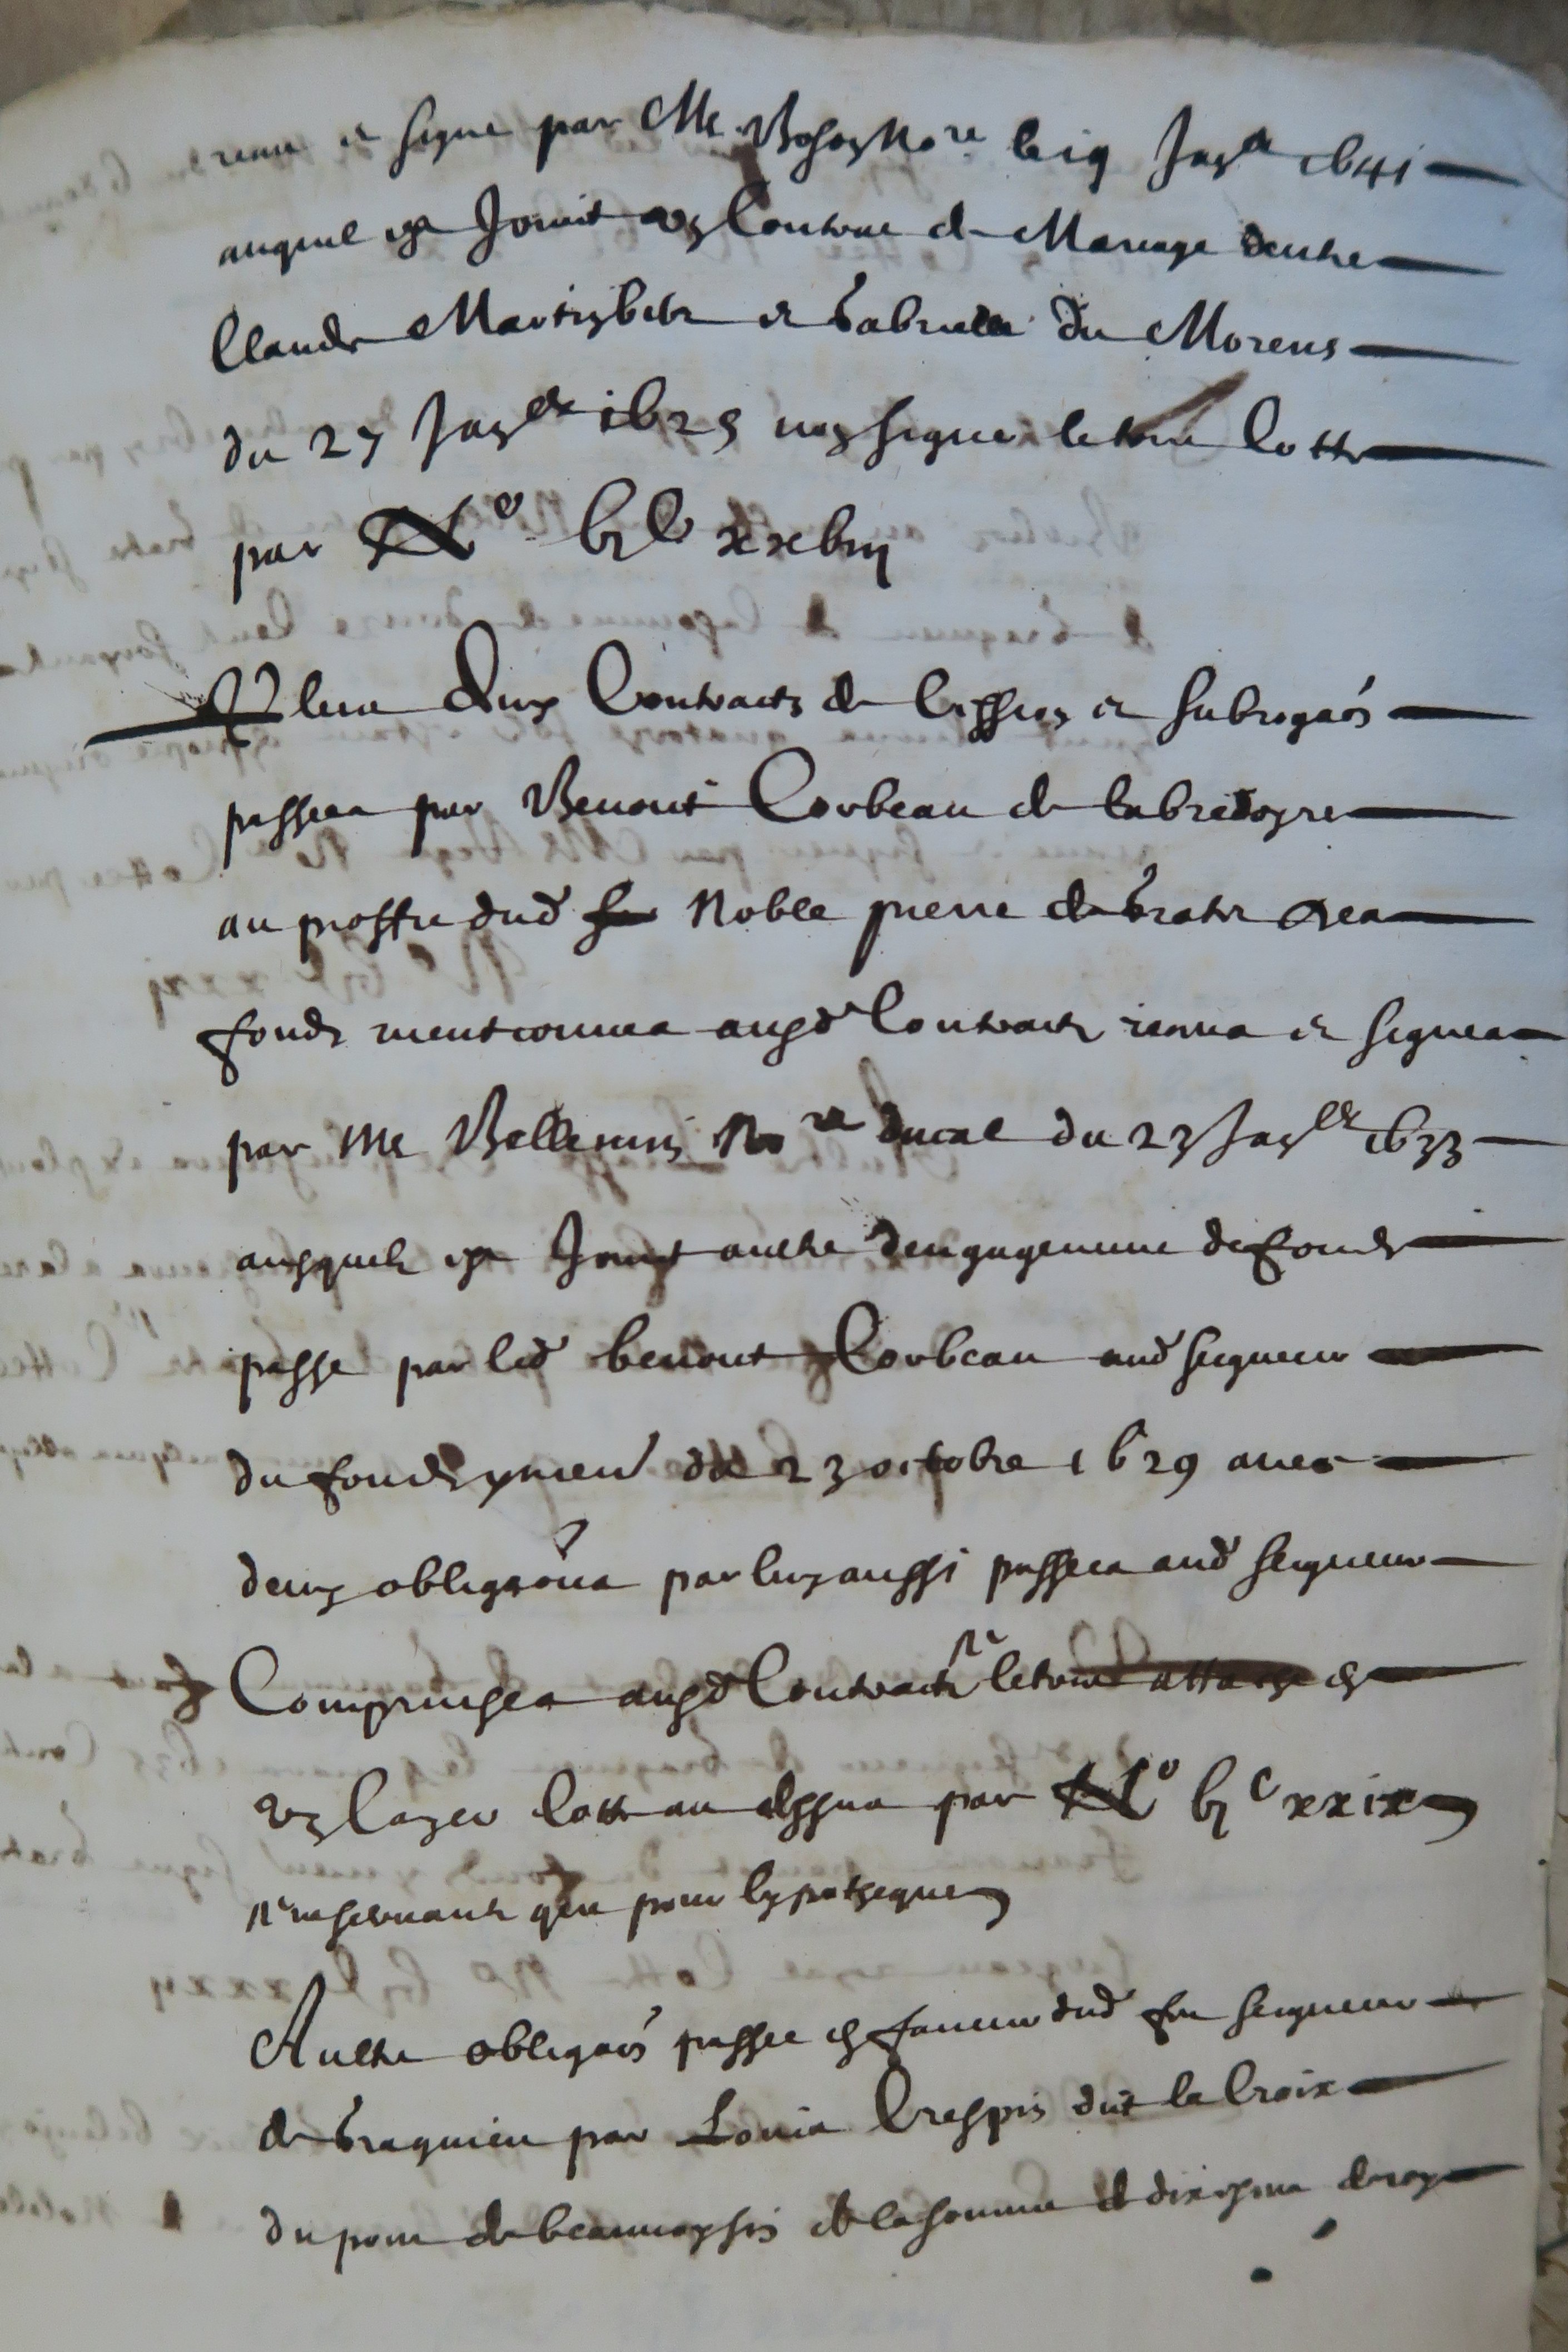 receu et signe par Me Bosoy No.re le 19 Jay.r 1641
auquel est Joinct ung Contract de Mariage dentre
Claude Martin et Gabrielle du Morens
du 27 Jay.er 1625 non signe le tout Cotté
par N.o bjC xxbiij
Plus deux Contracts de Cession et subrogaõn
passes par Benoict Corbeau de labridoyre
au proffit dud Noble pierre de Gratet des
fonds mentionnes ausd Contracts receus et signes
par Me Bellemin No.re ducal du 23 Jay.er 1633
ausquels est Joinct aultre dengagement de fonds
passe par led benoict Corbeau aud seigneur
du fonds y men.é du 23 octobre 1629 avec
deux obligaõns par luy aussi passees aud seigneur
Comprinses ausd Contracts le tout attaché en
ung Cayer Cotté au dessus par N.o bjc xxix
ne servants que pour lypotheque
Aultre obligaõn passee en faveur dud feu seigneur
de Graquieu par Louis Crespin dit la Croix
du pont de beauvoysin de la somme de dix